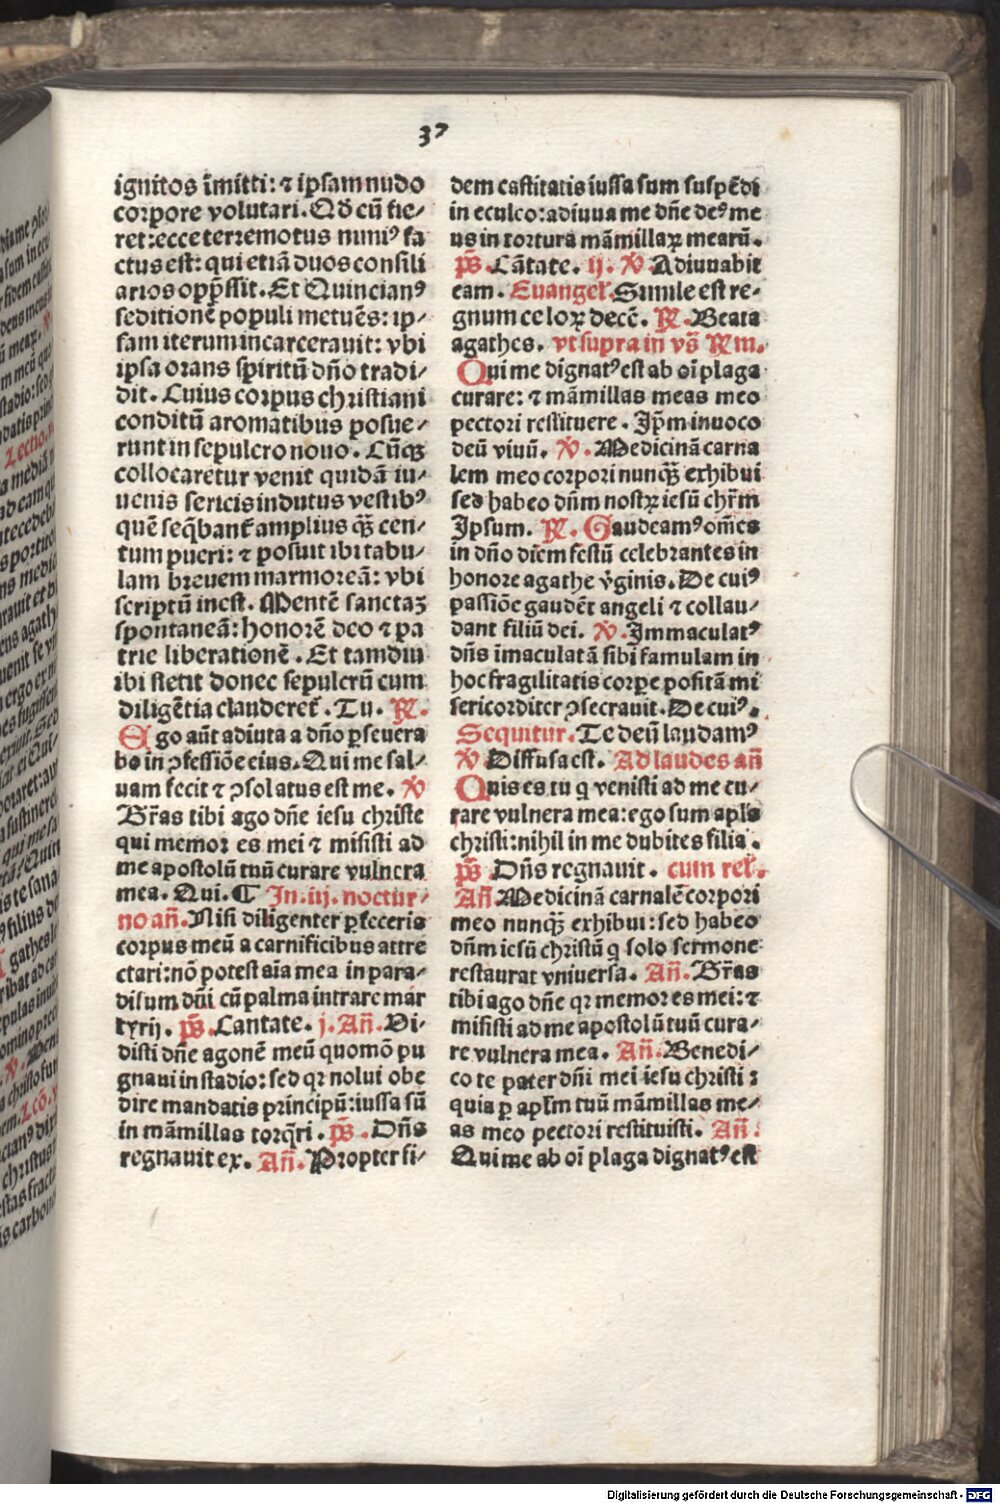 37
ignitos īmitti: ⁊ ipsam nudo
corpore volutari. Qd̄ cū fie⸗
ret: ecce terremotus nimiꝰ fa
ctus est: qui etiā duos consili
arios opp̄ssit. Et Quincianꝰ
seditionē populi metuēs: ip⸗
sam iterum incarcerauit: vbi
ipsa orans spiritū dn̄o tradi⸗
dit. Cuius corpus christiani
conditū aromatibus posue⸗
runt in sepulcro nouo. Cūqꝫ
collocaretur venit quidā iu⸗
uenis sericis indutus vestibꝰ
quē seq̄bant̄ amplius qꝫ̄ cen⸗
tum pueri: ⁊ posuit ibi tabu⸗
lam breuem marmoreā: vbi
scriptū inest. Mentē sanctaꝫ
spontaneā: honorē deo ⁊ pa
trie liberationē. Et tamdiu
ibi stetit donec sepulcrū cum
diligētia clauderet̄. Tu. R̄.
Ego aūt adiuta a dn̄o ꝑseuera
bo in ꝯfessiōe eius. Qui me sal⸗
uam fecit ⁊ ꝯsolatus est me. V̄
Gr̄as tibi ago dn̄e iesu christe
qui memor es mei ⁊ misisti ad
me apostolū tuū curare vulnera
mea. Qui. ¶ In. iij. noctur⸗
no añ. Nisi diligenter ꝑfeceris
corpus meū a carnificibus attre
ctari: nō potest aīa mea in para⸗
disum dn̄i cū palma intrare mar
tyrij. p̄s. Cantate. j. Añ. Vi⸗
disti dn̄e agonē meū quomō pu
gnaui in stadio: sed qr nolui obe
dire mandatis principū: iussa sū
in māmillas torq̄ri. p̄s. Dn̄s
regnauit ex. Añ. Propter fi⸗
dem castitatis iussa sum suspēdi
in eculeo: adiuua me dn̄e deꝰ me
us in tortura māmillaꝝ mearū.
p̄s. Cātate. ij. V̄. Adiuuabit
eam. Euangel̄. Simile est re⸗
gnum celoꝝ decē. R̄. Beata
agathes. vt supra in vs̄ Rm̄.
Qui me dignatꝰ est ab oī plaga
curare: ⁊ māmillas meas meo
pectori restituere. Ip̄m inuoco
deū viuū. V̄. Medicinā carna
lem meo corpori nunqꝫ̄ exhibui
sed habeo dn̄m nostꝝ iesū chr̄m
Ipsum. R̄. Gaudeamꝰ om̄es
in dn̄o diem festū celebrantes in
honore agathe v̄ginis. De cuiꝰ
passiōe gaudēt angeli ⁊ collau⸗
dant filiū dei. V̄. Immaculatꝰ
dn̄s īmaculatā sibi famulam in
hoc fragilitatis corpe positā mi
sericorditer ꝯsecrauit. De cuiꝰ.
Sequitur. Te deū laudamꝰ
V̄ Diffusa est. Ad laudes añ
Quis es tu q venisti ad me cu⸗
rare vulnera mea: ego sum apl̄s
christi: nihil in me dubites filia.
p̄s Dn̄s regnauit. cum rel̄.
Añ. Medicinā carnalē corpori
meo nunqꝫ̄ exhibui: sed habeo
dn̄m iesū christū q solo sermone
restaurat vniuersa. Añ. Gr̄as
tibi ago dn̄e qr memor es mei: ⁊
misisti ad me apostolū tuū cura⸗
re vulnera mea. Añ. Benedi⸗
co te pater dn̄i mei iesu christi:
quia ꝑ apl̄m tuū māmillas me⸗
as meo pectori restituisti. Añ.
Qui me ab oī plaga dignatꝰ est
Digitalisierung gefördert durch die Deutsche Forschungsgemeinschaft - DFG